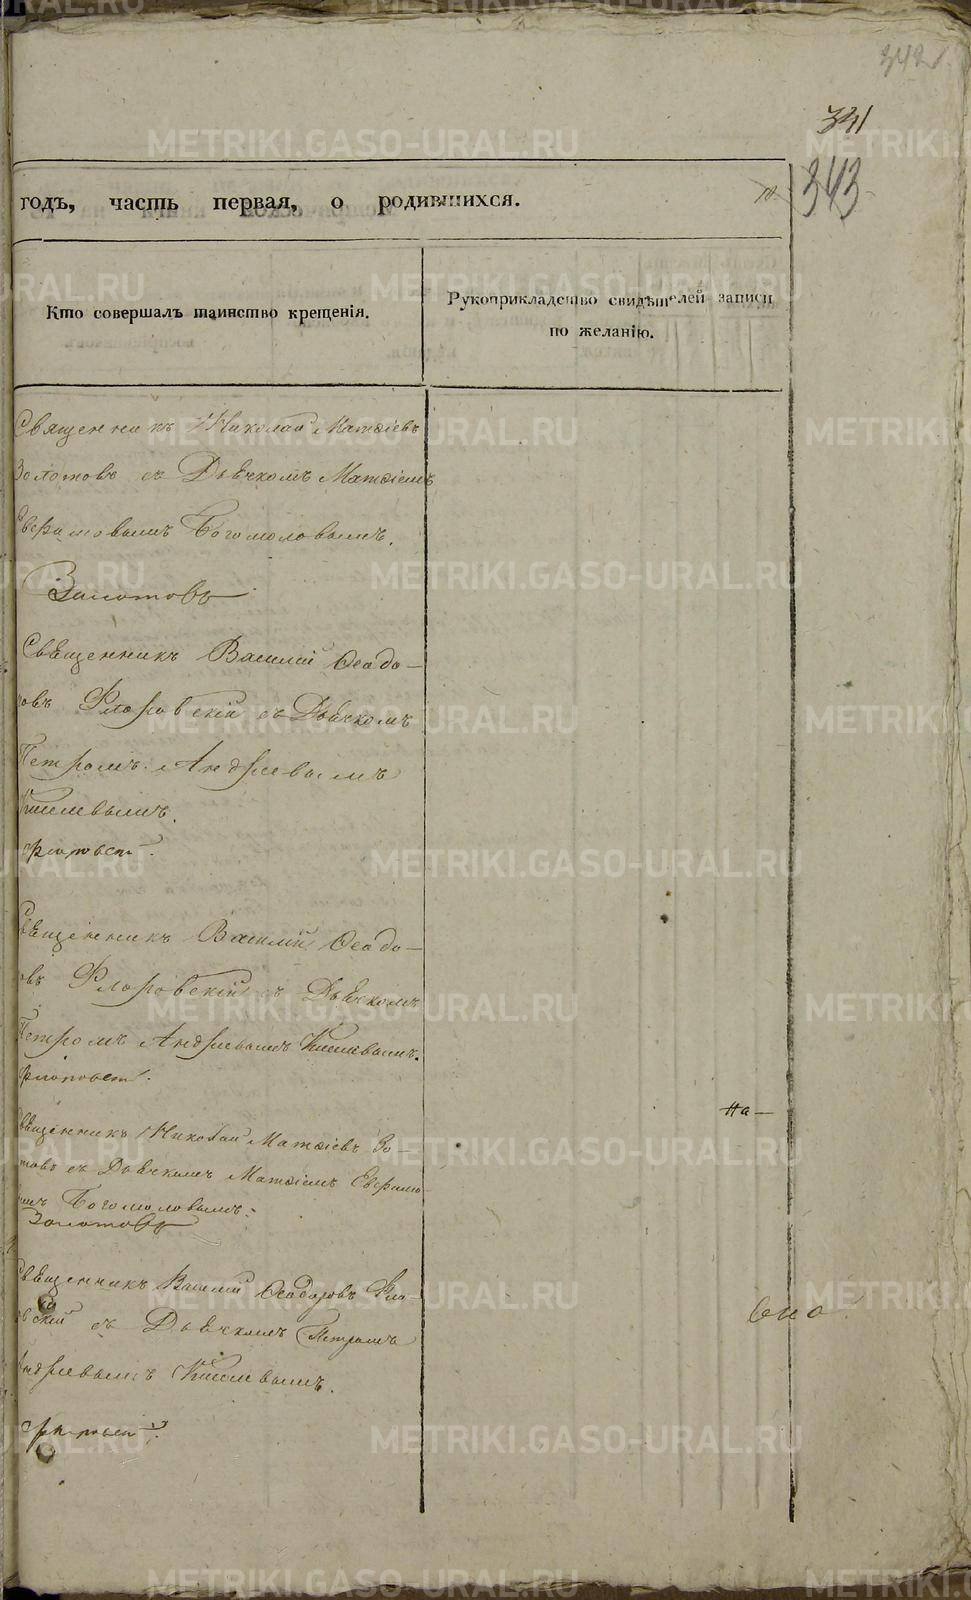 342
341
343
годъ, часть первая, о родившихся.
Кто совершалъ таинство крещенія.
Рукоприкладство свидѣтелей записи
по желанію.
Священникъ Николай Матѳіевъ
Золотовъ съ Дьячкомъ Матѳіемъ
Богомоловымъ.
Золотовъ
Священникъ Василій Ѳеодо-
ровъ Флоровскій съ Дьячкомъ
Петромъ Андреевымъ
Киселевымъ.
Священникъ Василій Ѳеодо-
ровъ Флоровскій съ Дьячкомъ
Петромъ Андреевымъ Киселевымъ.
Священникъ Николай Матѳіевъ Зо-
товъ съ Дьячкомъ Матѳіемъ
Богомоловымъ.
Золотовъ
На-
Священникъ Василій Ѳеодоровъ Фло-
ровскій съ Дьячкомъ Петромъ
Андреевымъ Киселевымъ.
METRIKI.GASO-URAL.RU